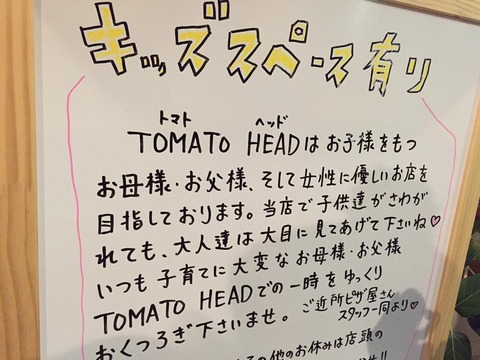 キッズスペース有り
トマト ヘッド
TOMATO HEADはお子様をもつ
お母様・お父様、そして女性に優しいお店を
目指しております。当店で子供達がさわが
れても、大人達は大目に見てあげて下さいね♡
いつも子育てに大変なお母様・お父様
TOMATO HEADでの一時をゆっくり
おくつろぎ下さいませ。
ご近所ピザ屋さん
スタッフ一同より♡
の他のお休みは店頭の